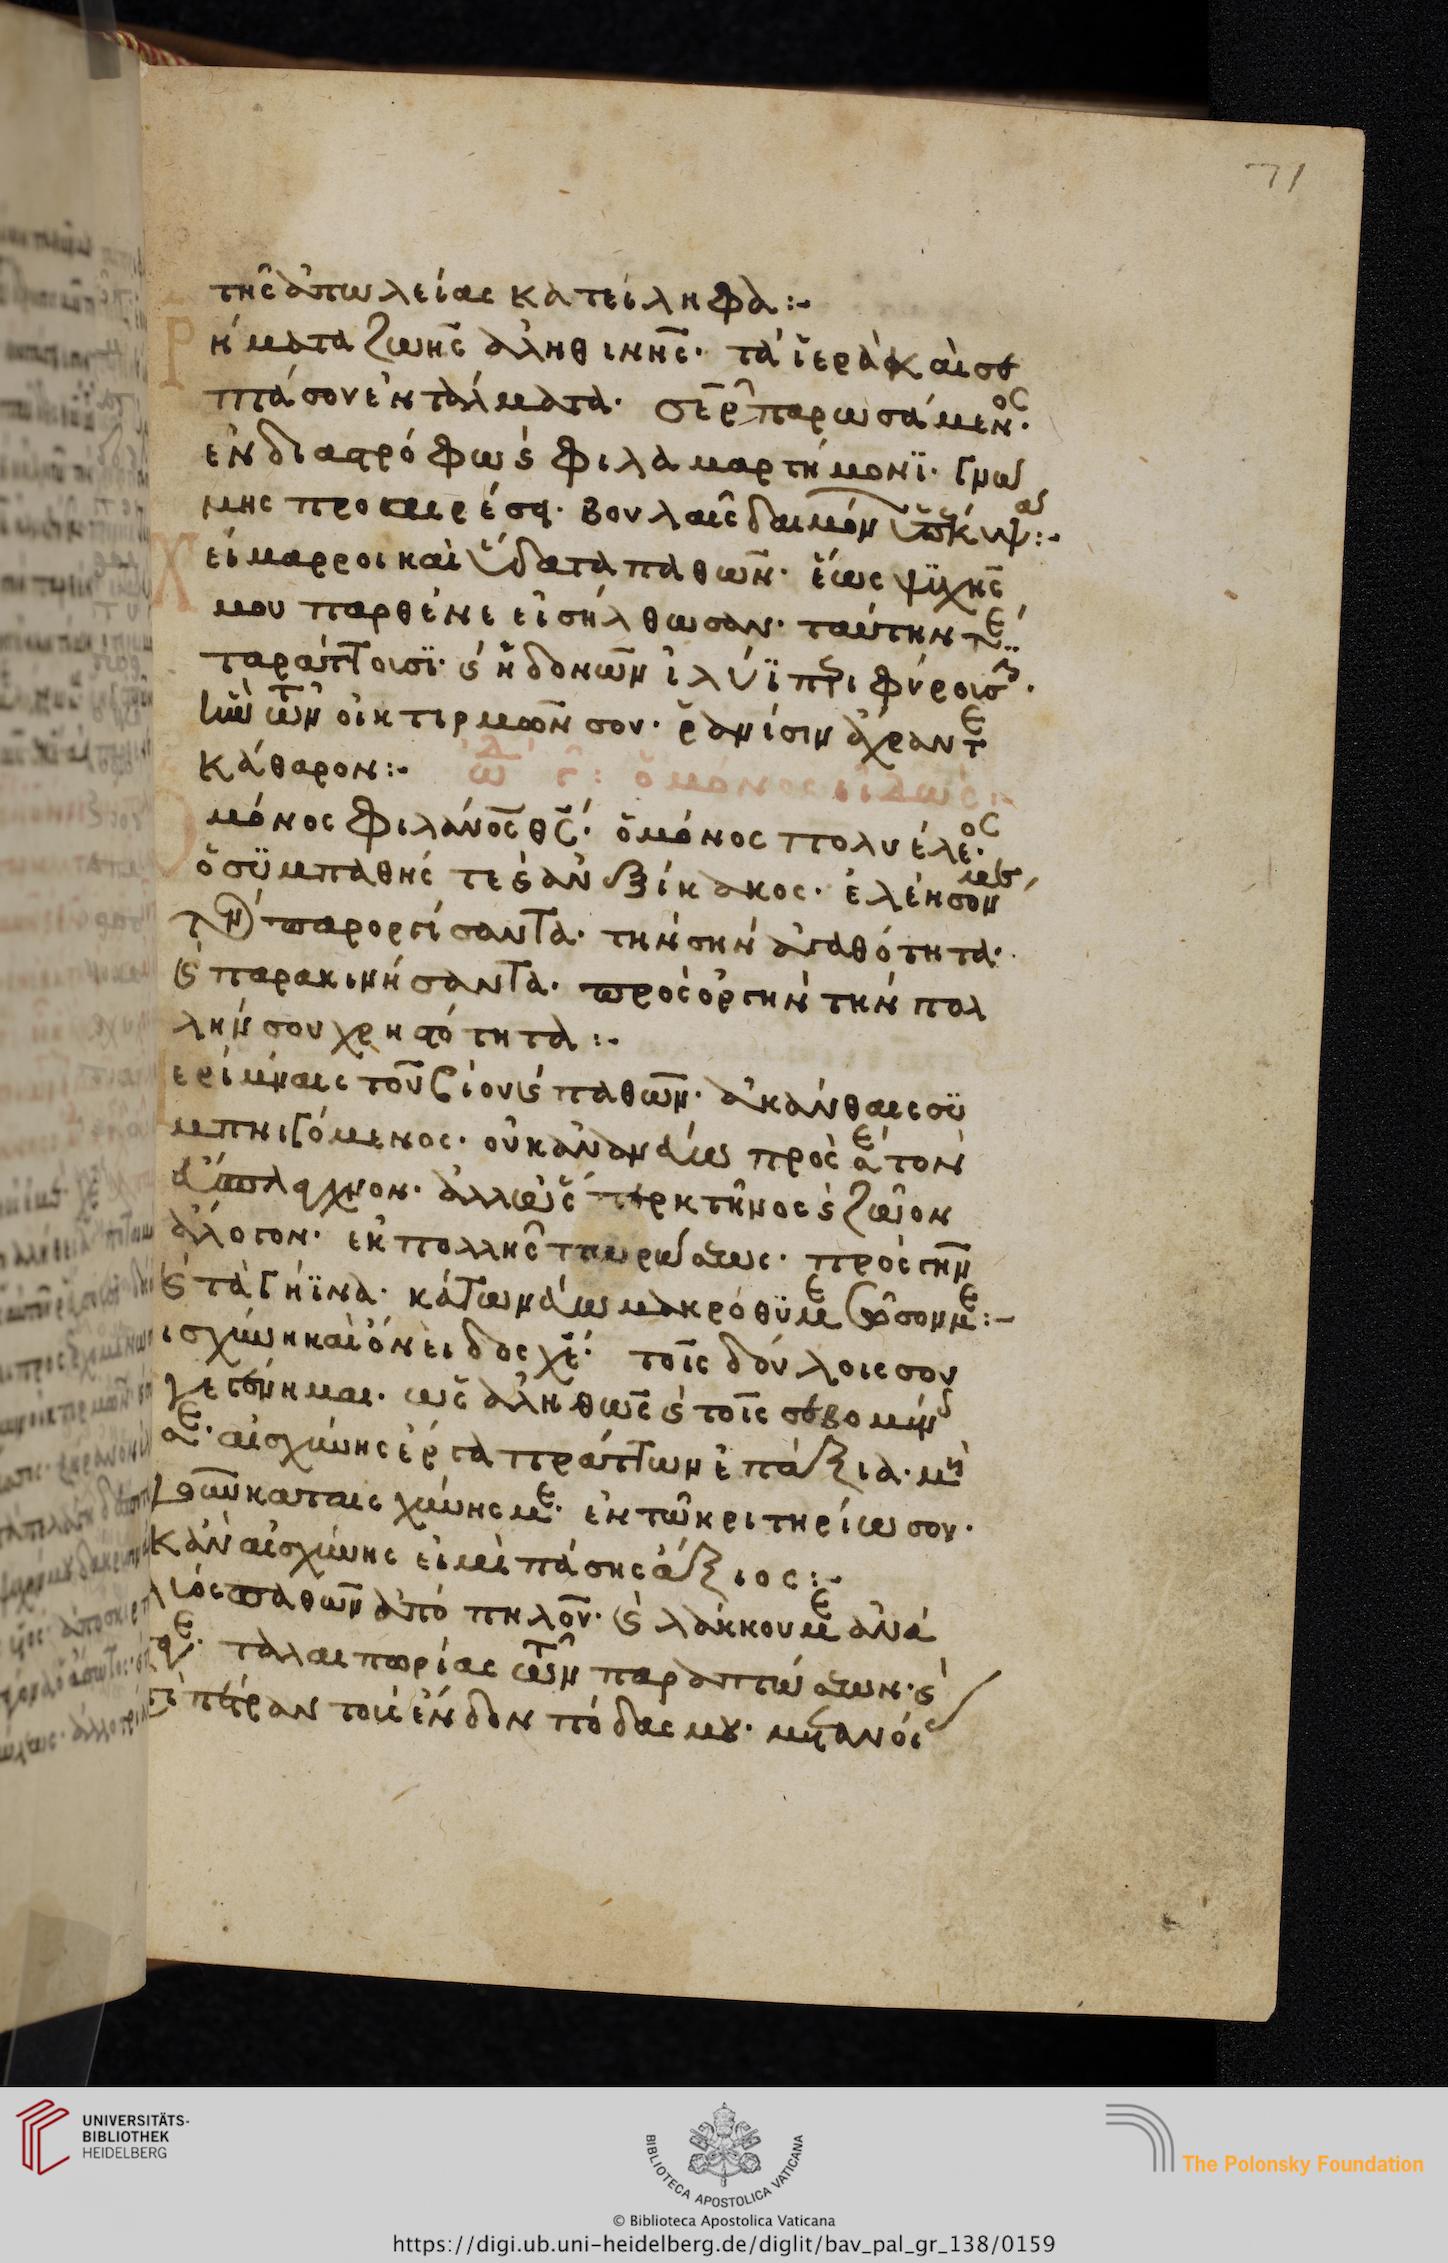 71
τῆς ἀπωλείας κατείληφα:-
Ῥήματα ζωῆς ἀληθινῆς· τὰ ἱερὰ καὶ σε
πτά σου ἐντάλματα· παρωσάμενος·
ἐνδιαστρόφω ς φιλαμαρτήμονϊ· γνώ
μης προαιρέσει· βουλαῖς δαιμόν ὑπέκυψα:-
Χείμαρροι καὶ ὕδατα παθῶν· ἕως ψϋχῆς
μου παρθένε εἰσήλθωσαν· ταύτην τε
ταράττουσϊ· ς ἡδονῶν ἰλύϊ περιφύρουσι·
τῶν οἰκτιρμῶν σου· ῥανίσιν ἄχραντε
κάθαρον:- ᾠδὴ ϛ: ὁ μόνος εἰδώς:-
Ὁ μόνος φιλάνος θς· ὁ μόνος πολυέλεος·
ὁ σϋμπαθής τε ς ἀνεξίκακος· ἐλέησόν με
τὸν παροργίσαντα· τὴν σὴν ἀγαθότητα·
ς παρακινήσαντα· πρὸς ὀργὴν τὴν πολ
λήν σου χρηστότητα:-
ερίμναις τοῦ βίου ς παθῶν· ἀκάνθαις σϋ
μπνιγόμενος· οὐκ ἀνανεύω πρὸς σὲ τὸν
εὔσπλαχνον· ἀλλ' ὡς κτῆνος ς ζῶον
ἄλογον· ἐκ πολλῆς πωρώσεως· πρὸς γῆν
ς τὰ γήϊνα· κάτω νεύω μακρόθϋμε σῶσόν με:-
ισχύνη καὶ ὄνειδος χέ· τοῖς δούλοις σου
γεγένημαι· ὡς ἀληθῶς ς τοῖς σεβομένοις
σε· αἰσχύνης ἔργα πράττων ἐπάξια· μὴ
οὖν καταισχύνης με· ἐν τῶ κριτηρίω σου·
κἂν αἰσχύνης εἰμὶ πάσης ἄξιος:-
λυός παθῶν ἀπὸ πηλοῦ· ς λάκκου με ἀνά
ταλαιπωρίας τῶν παραπτώσεων· ς
πέτραν τοὺς ἔνδον πόδας μου· μετανοί
UNIVERSITÄTS-
BIBLIOTHEK
HEIDELBERG
BIBLIOTECA APOSTOLICA VATICANA
The Polonsky Foundation
© Biblioteca Apostolica Vaticana
https://digi.ub.uni-heidelberg.de/diglit/bav_pal_gr_138/0159